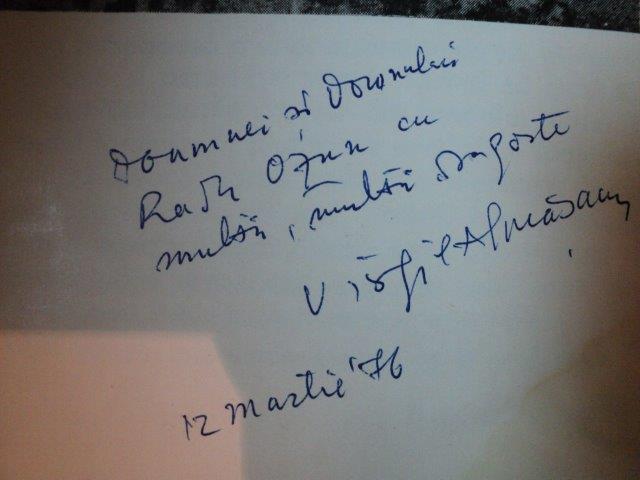 Doamnei și Domnului
Radu Ozun cu
multă, multă dragoste
Virgil Almășanu
12 Martie '76